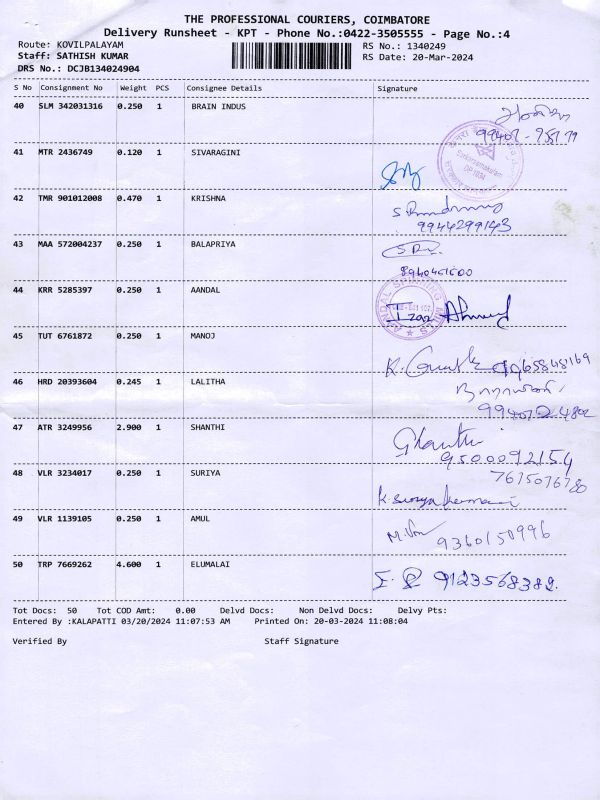 THE PROFESSIONAL COURIERS, COIMBATORE
Delivery Runsheet - KPT - Phone No.:0422-3505555 - Page No.:4
Route: KOVILPALAYAM RS No.: 1340249
Staff: SATHISH KUMAR RS Date: 20-Mar-2024
DRS No.: DCJB134024904
S No Consignment No Weight PCS Consignee Details Signature
40 SLM 342031316 0.250 1 BRAIN INDUS
41 MTR 2436749 0.120 1 SIVARAGINI
42 TMR 901012008 0.470 1 KRISHNA
9944299143
43 MAA 572004237 0.250 1 BALAPRIYA
44 KRR 5285397 0.250 1 AANDAL
AANDAL SPINNING MILLS
Izaz Ahmed
45 TUT 6761872 0.250 1 MANOJ
46 HRD 20393604 0.245 1 LALITHA
47 ATR 3249956 2.900 1 SHANTHI
Shanthi
9500092154
48 VLR 3234017 0.250 1 SURIYA
7675076780
49 VLR 1139105 0.250 1 AMUL
9360150996
50 TRP 7669262 4.600 1 ELUMALAI
9123568382.
Tot Docs: 50 Tot COD Amt: 0.00 Delvd Docs: Non Delvd Docs: Delvy Pts:
Entered By :KALAPATTI 03/20/2024 11:07:53 AM Printed On: 20-03-2024 11:08:04
Verified By Staff Signature